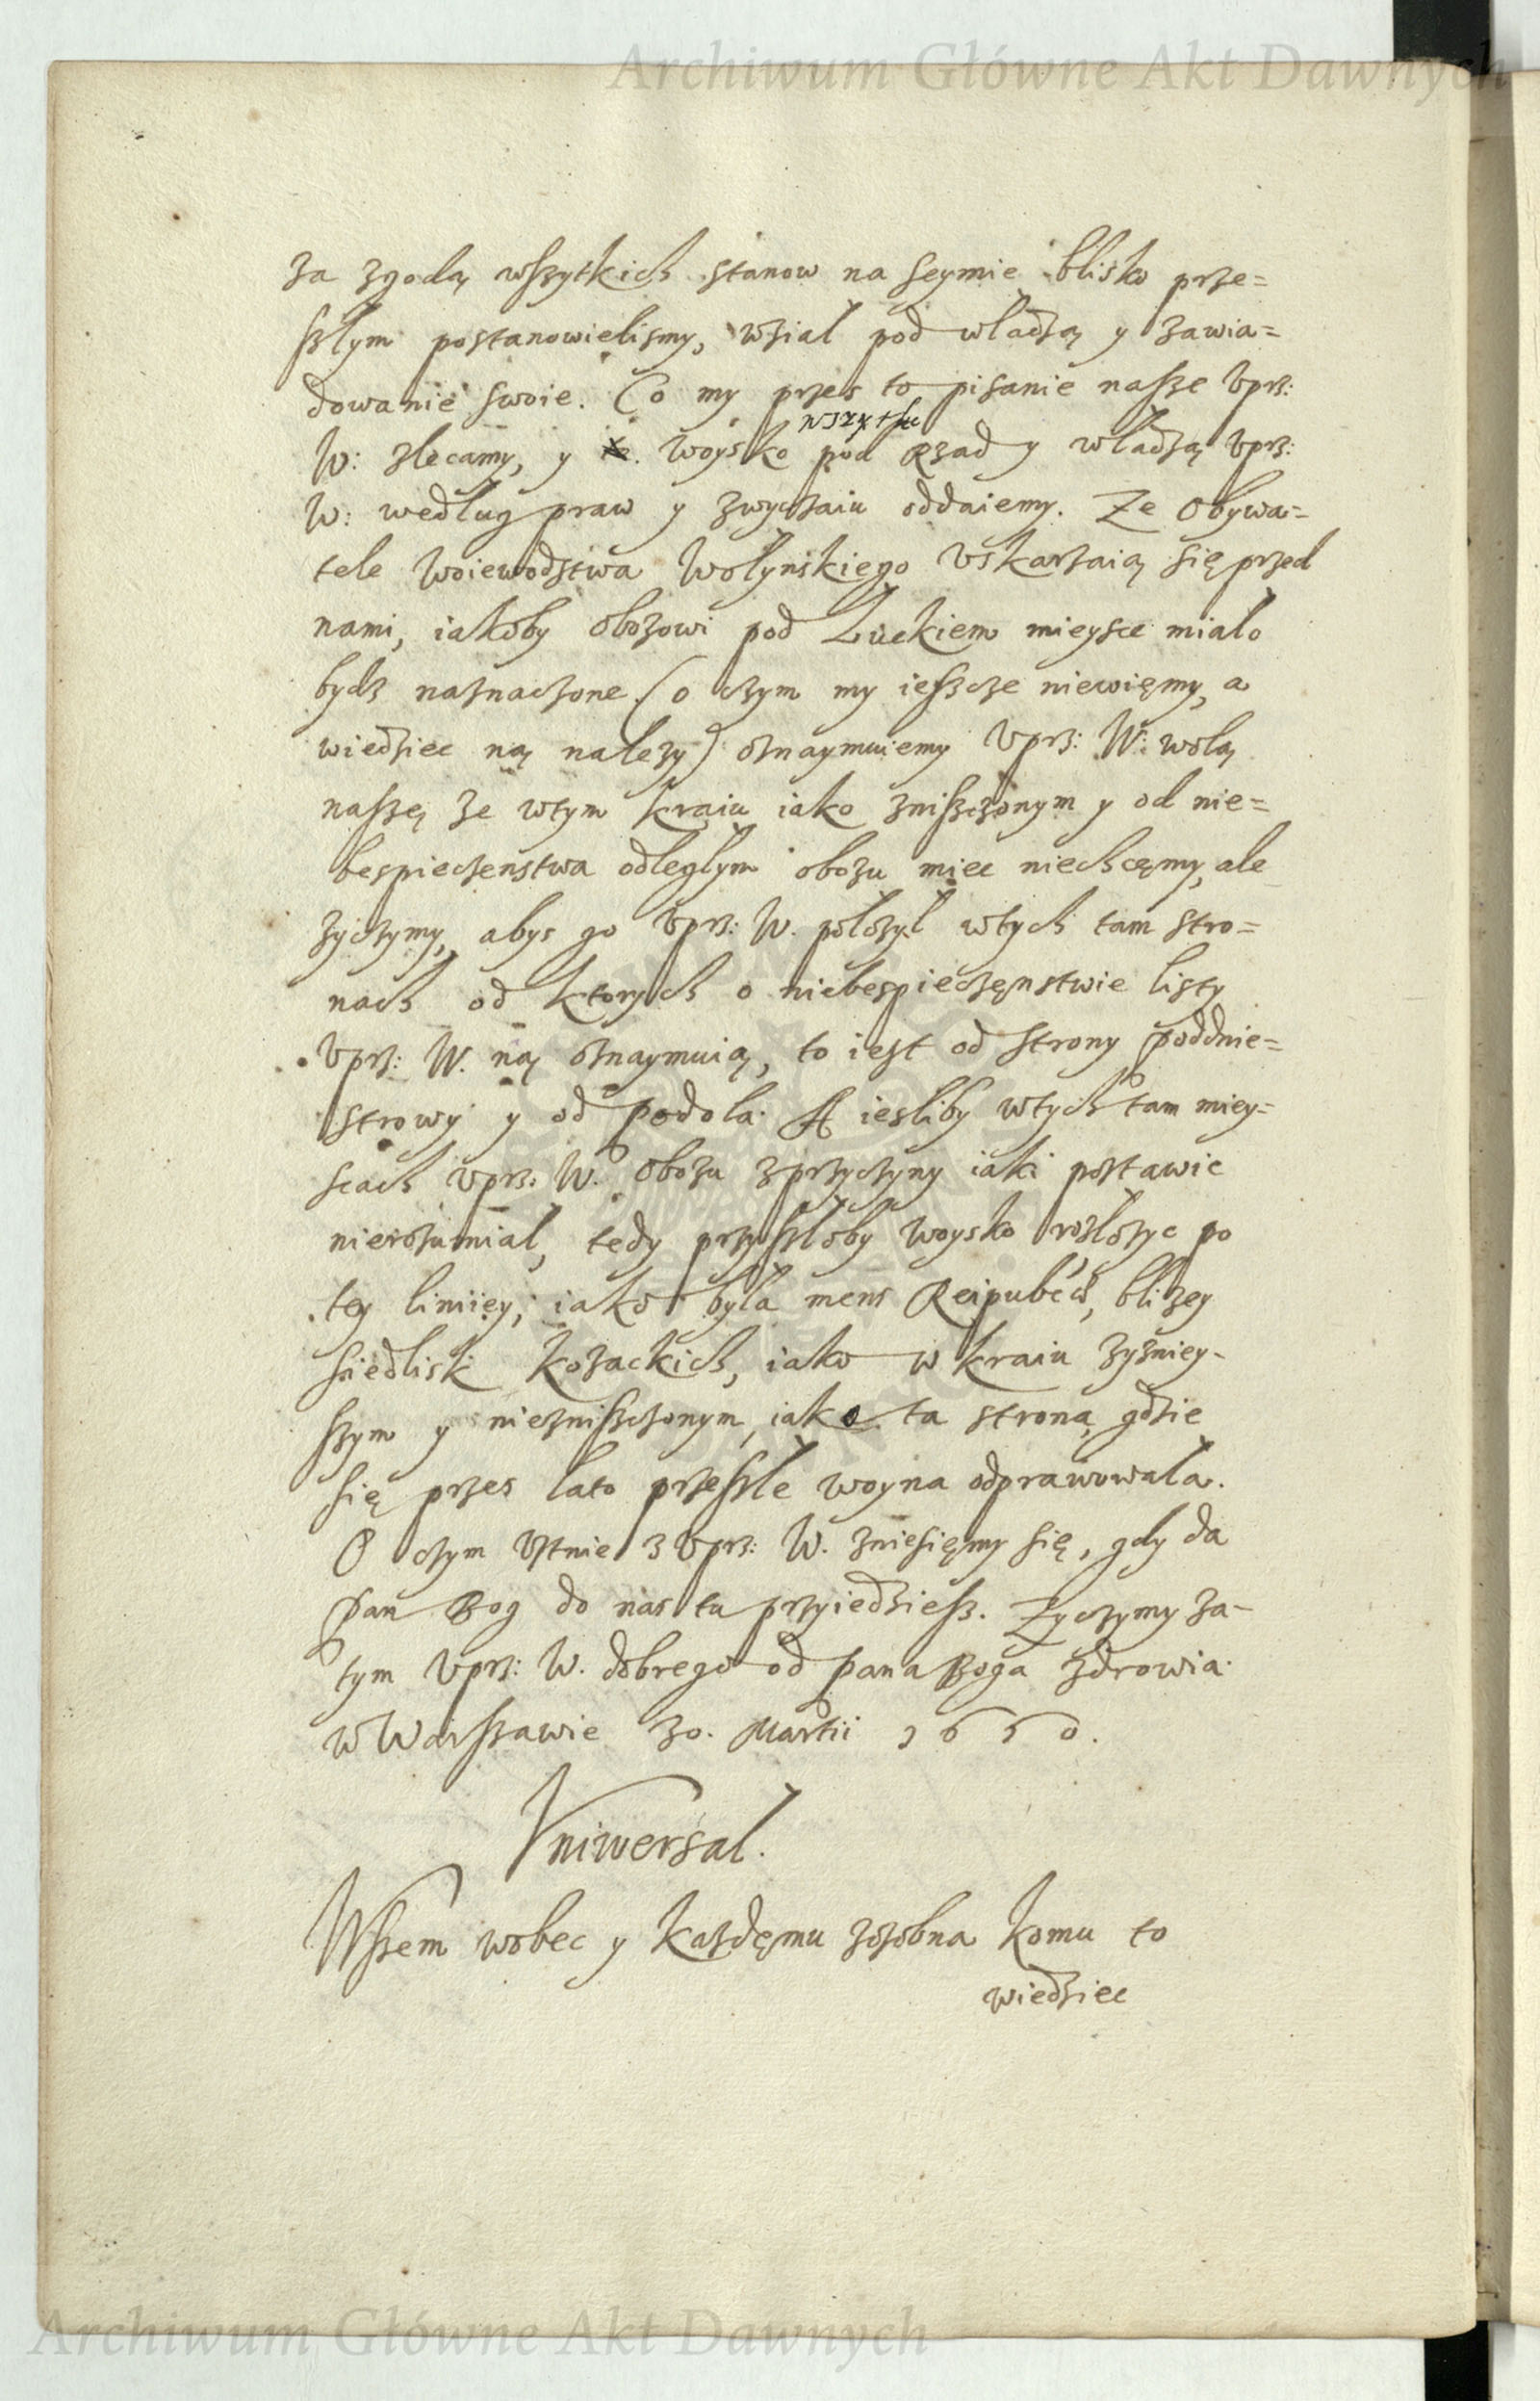 Archiwum Główne Akt Dawnych
za zgodą wszytkich stanow na seymie blisko prze=
szłym postanowielismy, wział pod władzą y zawia=
dowanie swoie. Co my przes to pisanie nasze Vprz:
wszytko
W: zlecamy, y woysko pod Rząd y władzą Vprz:
W: według praw y zwyczaiu oddaiemy. Ze Obywa=
tele Woiewodstwa Wołynskiego Vskarzaią się przed
nami, iakoby obozowi pod Łuckiem mieysce miało
bydz naznaczone (o czym my ieszcze niewięmy, a
wiedziec ną nalezy) oznaymuiemy Vprz: W: wolą
naszę ze wtym kraiu iako zniszczonym y od nie=
bespieczenstwa odległym obozu miec niechcęmy, ale
zyczymy, abys go Vprz: W. położył wtych tam stro=
nach od ktorych o niebespieczęnstwie listy
Vprz: W. ną oznaymuią, to iest od strony poddnie=
strowy y od Podola. A iesliby wtych tam miey=
scach Vprz: W. obozu zprzyczyny iaki postawic
nierozumiał, tedy przyszłoby woysko rozłozyc po
tey liniiey, iako była mens Reipubcæ, blizey
siedlisk Kozackich, iako w kraiu zyzniey-
szym y niezniszczonym, iako ta strona, gdzie
się przes lato przeszłe woyna odprawowała.
O czym Vstnie z Vprz: W. zniesięmy się, gdy da
Pan Bog do nas tu przyiedziesz. Zyczymy za-
tym Vprz: W. dobrego od Pana Boga zdrowia.
w Warszawie 30. Martii 1650.
Vniwersał.
Wszem wobec y Kazdęmu zosobna komu to
wiedziec
Archiwum Główne Akt Dawnych